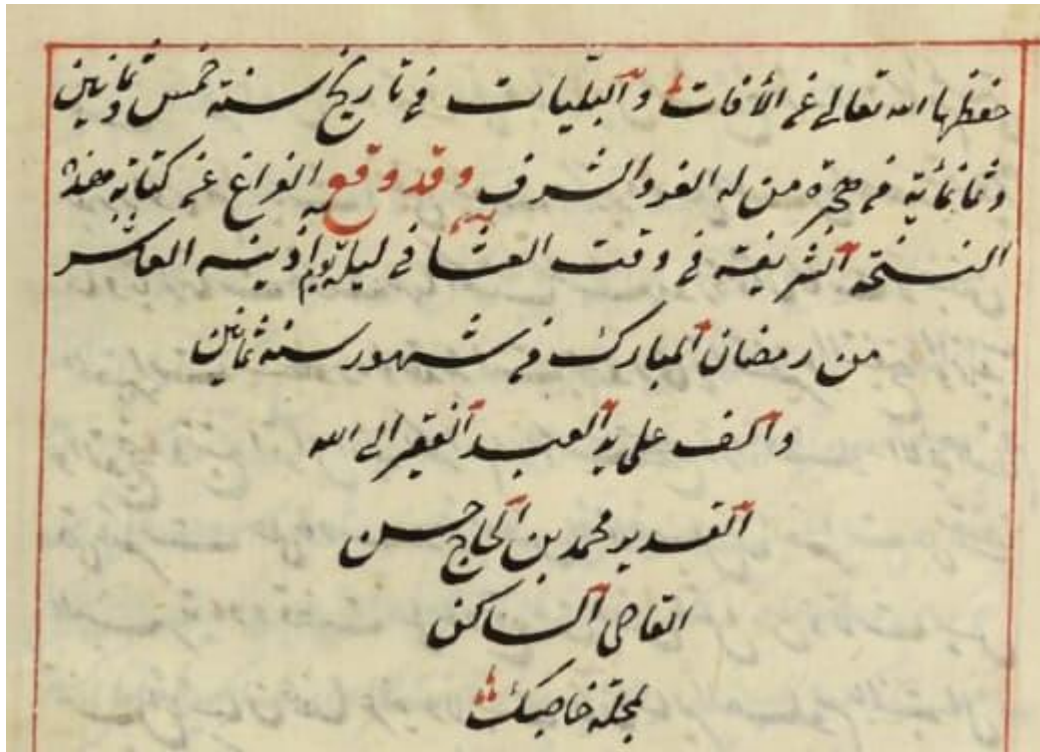 حفظها الله تعالى عن الأفات والبليات في تاريخ سنة خمس وثمانين
وثمانمائة من هجرة من له العز والشرف وقد وقع الفراغ عن كتابة هذه
النسخة الشريفة في وقت العشا في ليلة يوم اذينه العاشر
من رمضان المبارك في شهور سنة ثمانين
والف على يد العبد الفقير الى الله
القدير محمد بن الحاج حسن
القاضى الساكن
بمحلة خاصبك